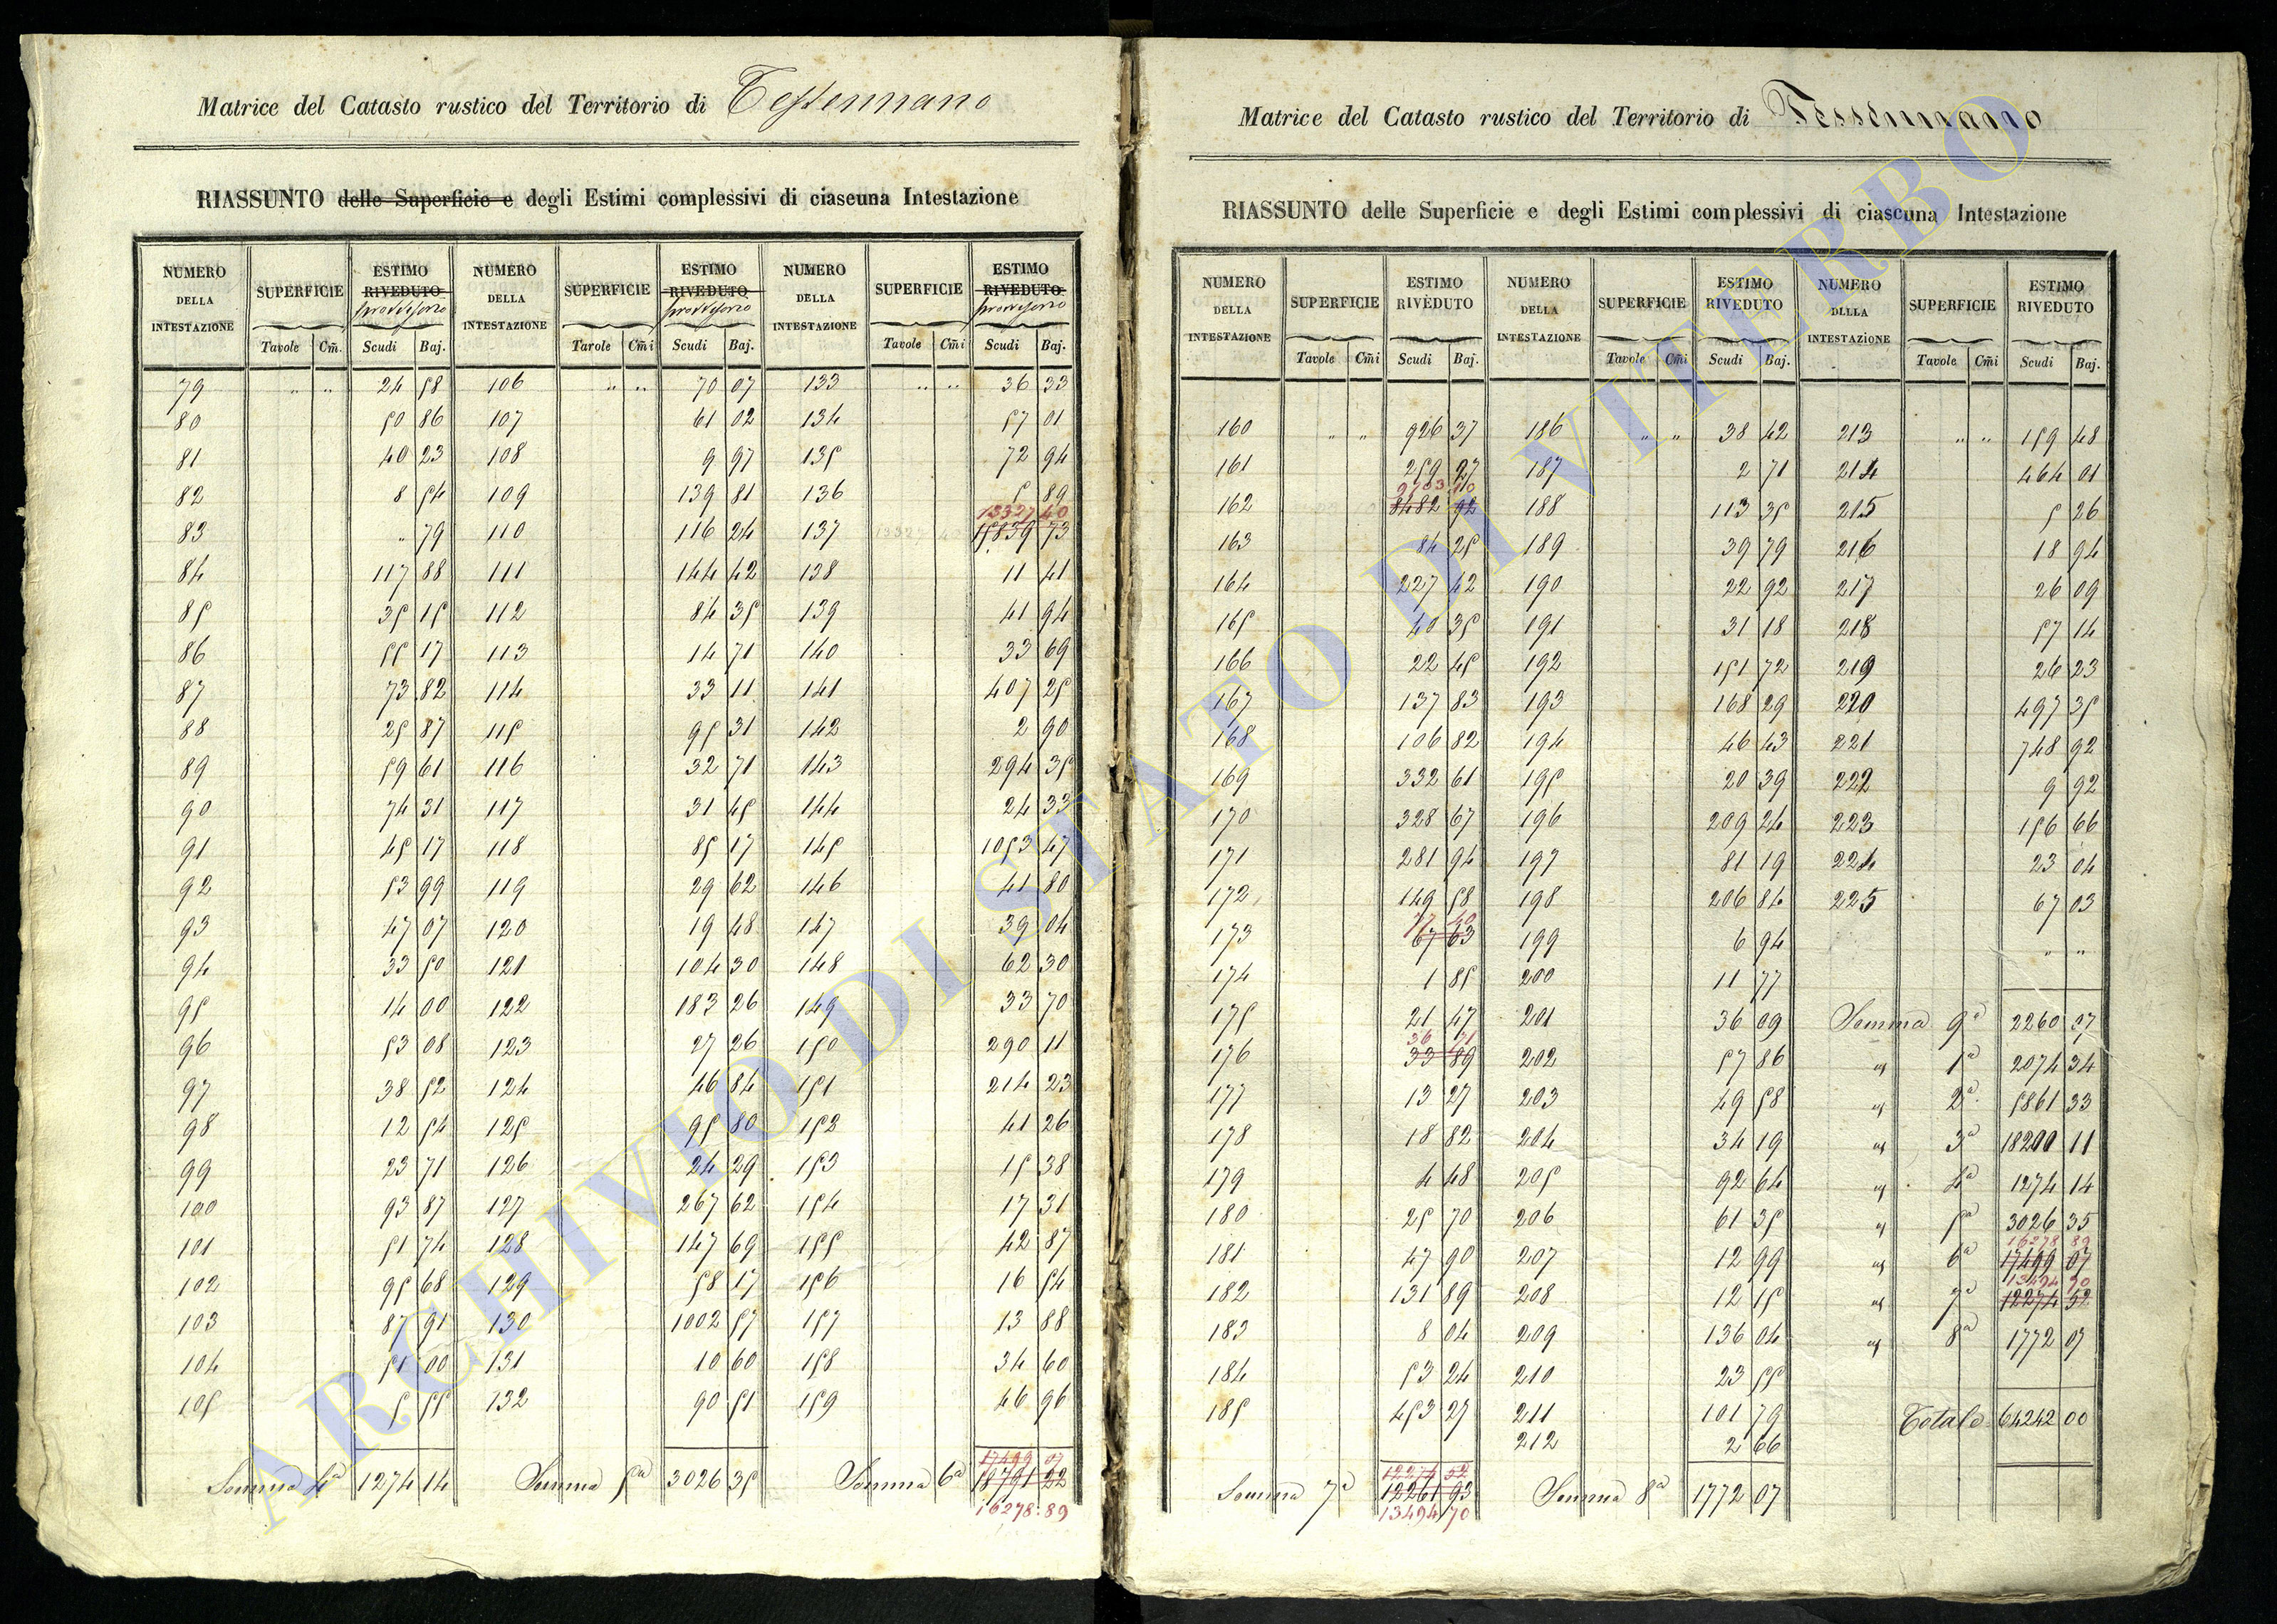 Matrice del Catasto rustico del Territorio di Tessennano
RIASSUNTO delle Superficie e degli Estimi complessivi di ciascuna Intestazione
NUMERO DELLA INTESTAZIONE SUPERFICIE ESTIMO RIVEDUTO provvisorio NUMERO DELLA INTESTAZIONE SUPERFICIE ESTIMO RIVEDUTO provvisorio NUMERO DELLA INTESTAZIONE SUPERFICIE ESTIMO RIVEDUTO provvisorio
Tavole Cm̄i. Scudi Baj. Tavole Cm̄i Scudi Baj. Tavole Cm̄i Scudi Baj.
79 " " 24 58 106 " " 70 07 133 " " 36 33
80 50 86 107 61 02 134 57 01
81 40 23 108 9 97 135 72 94
82 8 54 109 139 81 136 5 89
13327 40
83 " 79 110 116 24 137 13327 40 15839 73
84 117 88 111 144 42 138 11 41
85 35 15 112 84 35 139 41 94
86 55 17 113 14 71 140 33 69
87 73 82 114 33 11 141 407 25
88 25 87 115 95 31 142 2 90
89 59 61 116 32 71 143 294 35
90 74 31 117 31 45 144 24 33
91 45 17 118 85 17 145 1053 47
92 53 99 119 29 62 146 41 80
93 47 07 120 19 48 147 39 04
94 33 50 121 104 30 148 62 30
95 14 00 122 183 26 149 33 70
96 53 08 123 27 26 150 290 11
97 38 52 124 46 84 151 214 23
98 12 54 125 95 80 152 41 26
99 23 71 126 24 29 153 15 38
100 93 87 127 267 62 154 17 31
101 51 74 128 147 69 155 42 87
102 95 68 129 58 17 156 16 54
103 87 91 130 1002 57 157 13 88
104 51 00 131 10 60 158 34 60
105 5 55 132 90 51 159 46 96
17499 07
Somma 4a 1274 14 Somma 5a 3026 35 Somma 6a 18791 22
16278.89
Matrice del Catasto rustico del Territorio di Tessennano
RIASSUNTO delle Superficie e degli Estimi complessivi di ciascuna Intestazione
NUMERO DELLA INTESTAZIONE SUPERFICIE ESTIMO RIVEDUTO NUMERO DELLA INTESTAZIONE SUPERFICIE ESTIMO RIVEDUTO NUMERO DLLLA INTESTAZIONE SUPERFICIE ESTIMO RIVEDUTO
Tavole Cm̄i Scudi Baj. Tavole Cm̄i Scudi Baj. Tavole Cm̄i Scudi Baj.
160 " " 926 37 186 " " 38 42 213 " " 159 48
161 259 27 187 2 71 214 464 01
162 8482 92 188 113 35 215 5 26
163 84 25 189 39 79 216 18 94
164 227 42 190 22 92 217 26 09
165 40 35 191 31 18 218 57 14
166 22 45 192 151 72 219 26 23
167 137 83 193 168 29 220 497 35
168 106 82 194 46 43 221 748 92
169 332 61 195 20 39 222 9 92
170 328 67 196 209 24 223 156 66
171 281 94 197 81 19 224 23 04
172 149 58 198 206 84 225 67 03
77 40
173 67 63 199 6 94 " "
174 1 85 200 11 77
175 21 47 201 36 09 Somma 9a 2260 07
36 71
176 33 89 202 57 86 " 1a 2074 34
177 13 27 203 49 58 " 2a 5861 33
178 18 82 204 34 19 " 3a 18200 11
179 4 48 205 92 64 " 4a 1274 14
180 25 70 206 61 35 " 5a 3026 35
16278 89
181 47 90 207 12 99 " 6a 17499 07
13494 70
182 131 89 208 12 15 " 7a 12274 52
183 8 04 209 136 04 " 8a 1772 07
184 53 24 210 23 55
185 453 27 211 101 79 Totale 64242 00
212 2 66
12274 52
Somma 7a 12261 93 Somma 8a 1772 07
13494 70
ARCHIVIO DI STATO DI VITERBO